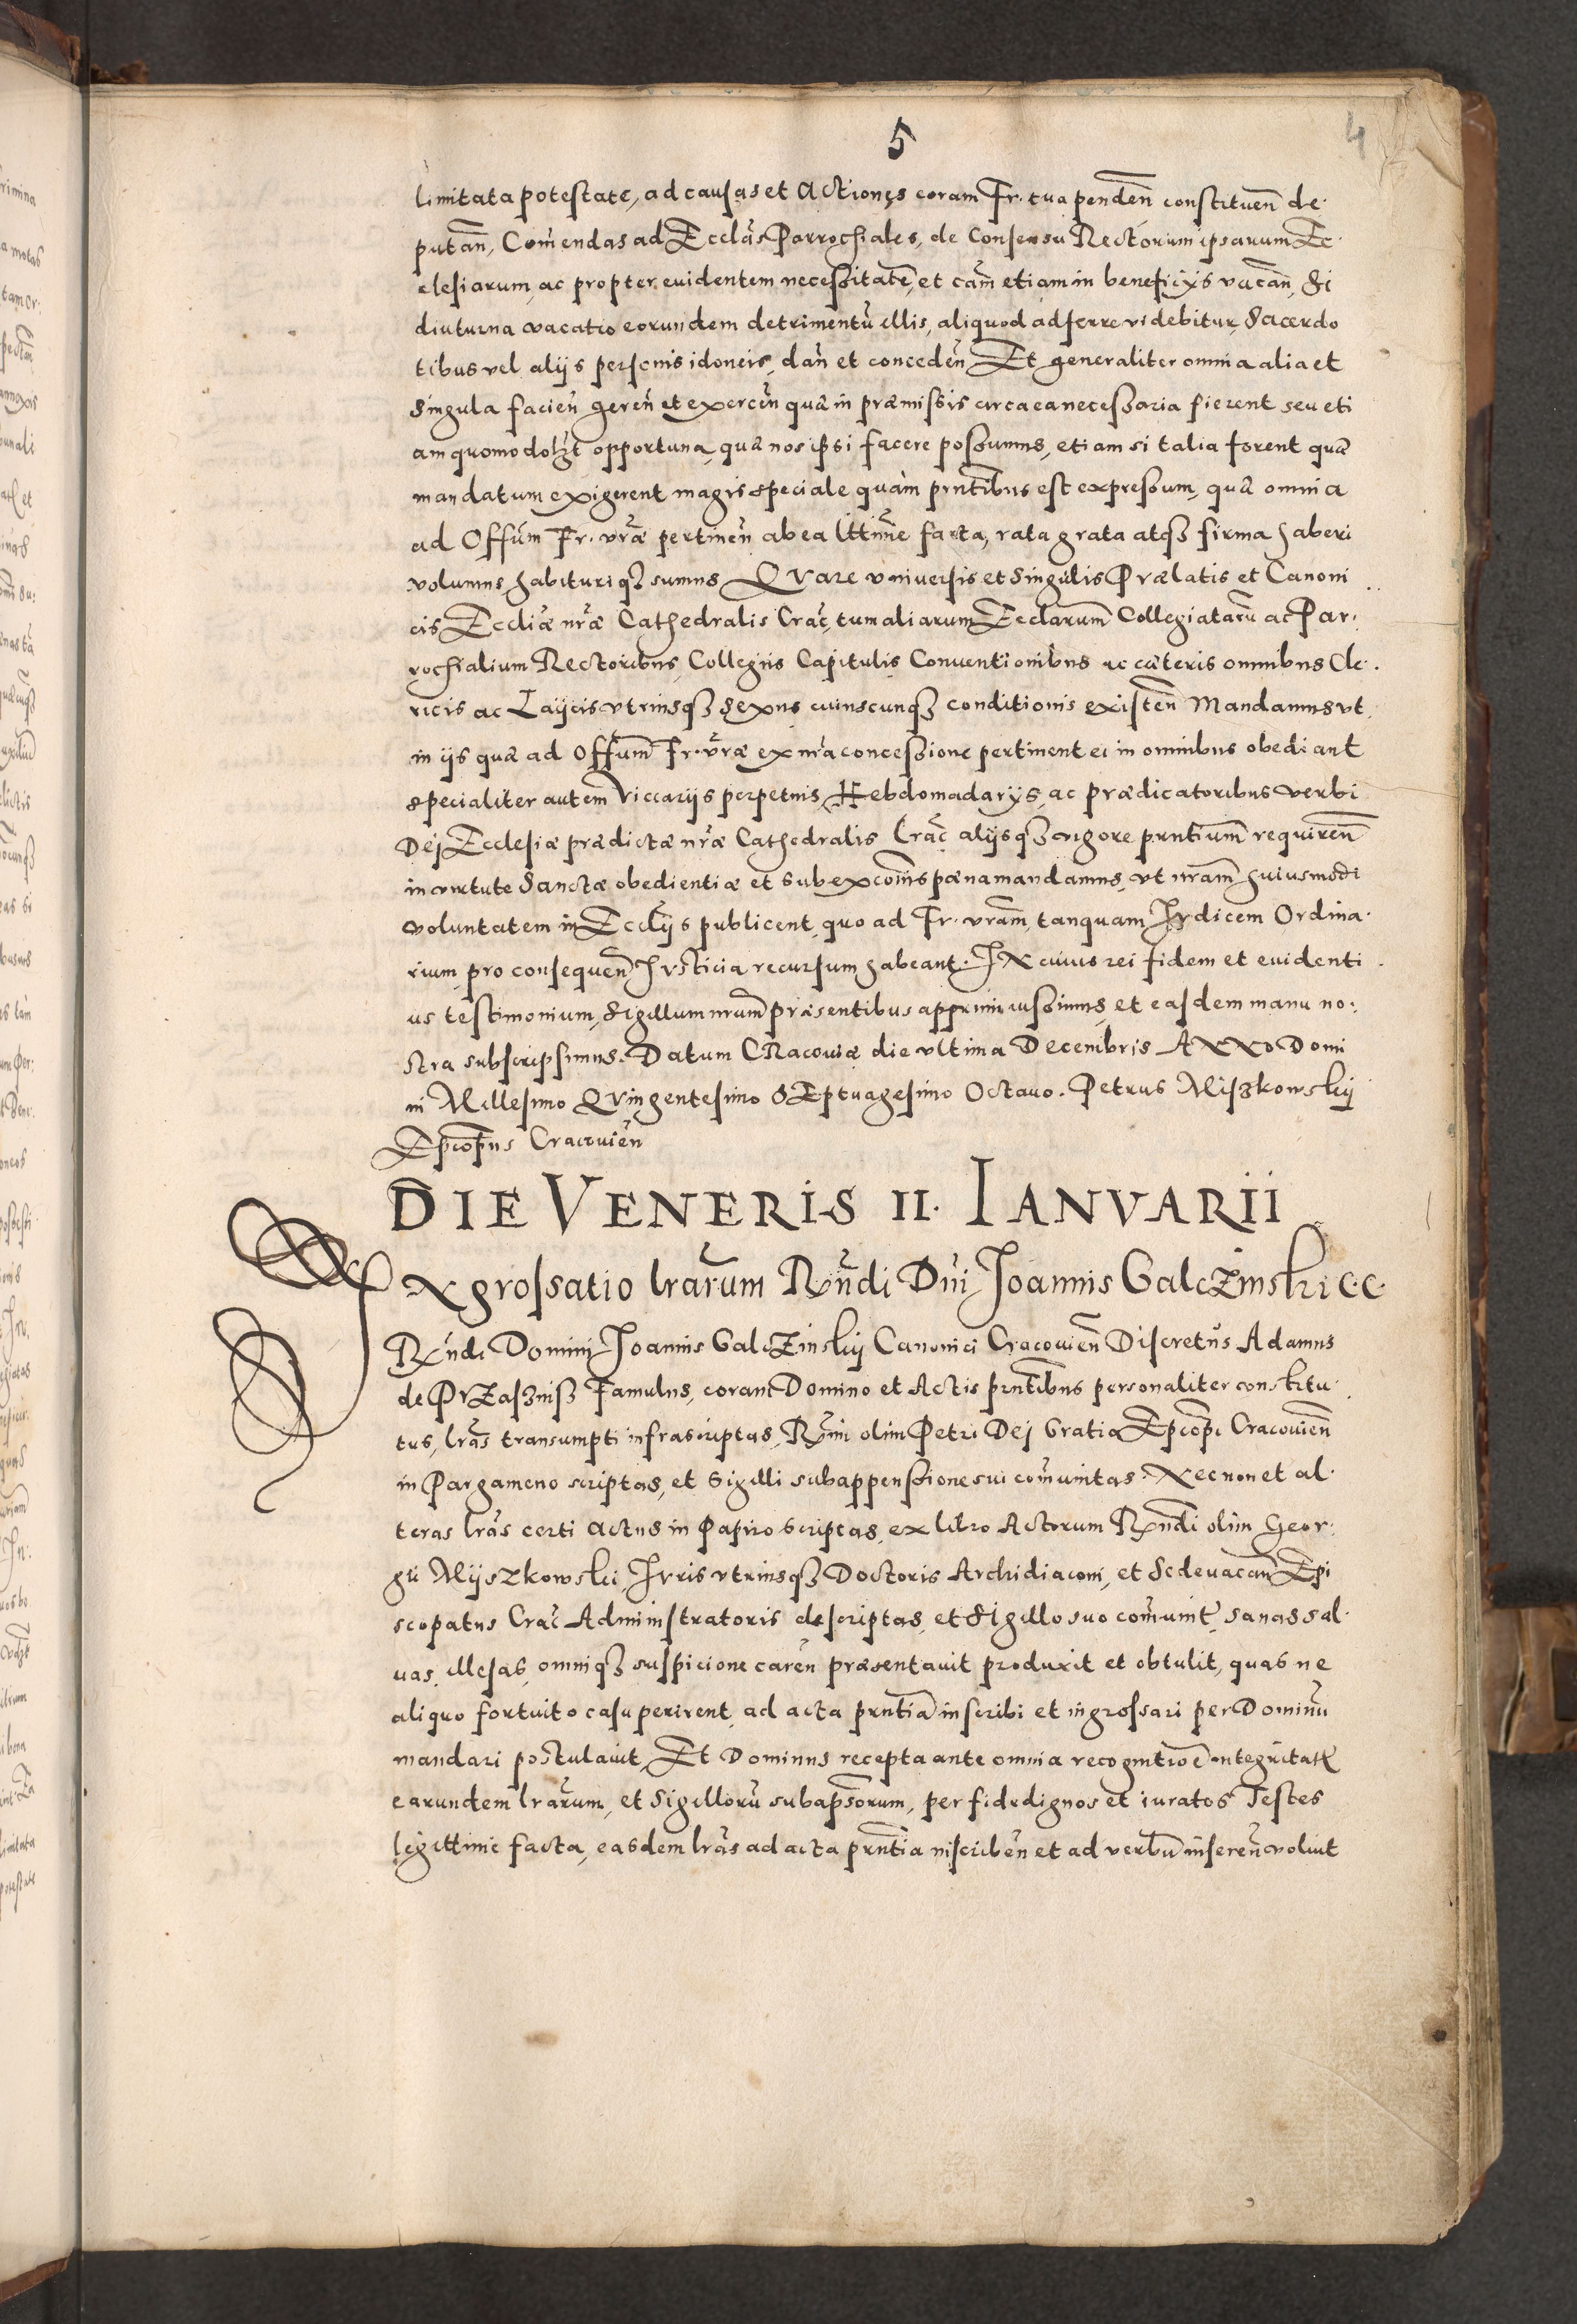 5
4
limitata potestate, ad causas et Actiones coram Fr. tua pendeñ constitueñ de-
putañ, Com̃endas ad Ecclãs Parrochiales, de Consensu Rectorum ipsarum Ec-
clesiarum, ac propter euidentem necessitatẽ, et cam̃ etiam in beneficijs vacañ, Si
diuturna vacatio eorundem detrimentũ illis, aliquod adferre videbitur, Sacerdo
tibus vel alijs personis idoneis, dañ et concedeñ Et generaliter omnia alia et
Singula facieñ gereñ et exerceñ quæ in præmissis circa ea necessaria fierent seu eti
am quomodolz̃t opportuna, quæ nos ipsi facere possumus, etiam si talia forent quæ
mandatum exigerent magis speciale quàm pñtibus est expressum, quæ omnia
ad Offũm Fr. vr̃æ pertineñ ab ea lttim̃e facta, rata grata atqȝ firma haberi
volumus habituriqȝ sumus Quare vniuersis et Singulis Prælatis et Canoni
cis Ecclĩæ nr̃æ Cathedralis Crac̃, tum aliarum Ecclarum̃ Collegiatarũ ac Par-
rochialium Rectoribus, Collegijs Capitulis Conuentionibus ac cæteris omnibus Cle-
ricis ac Laijcis vtriusqȝ sexus cuiuscunqȝ conditionis existeñ Mandamus vt
in ijs quæ ad Offũm Fr. vr̃æ ex nr̃a concessione pertinent ei in omnibus obediant
specialiter autem Viccarijs perpetuis, Hebdomadarijs, ac prædicatoribus verbi
Dej Ecclesiæ prædictæ nr̃æ Cathedralis Crac̃ alijsqȝ vigore pñtium̃ requireñ
in virtute Sanctæ obedientiæ et sub excoĩs pæna mandamus, vt nr̃am̃ huiusmodi
voluntatem in Ecclijs publicent, quo ad Fr. vr̃am, tanquam Iudicem Ordina-
rium, pro consequeñ Iusticia recursum habeant. In cuius rei fidem et euidenti
us testimonium, Sigillum nr̃um præsentibus apprimi iussimus, et easdem manu no-
stra subscripsimus. Datum Cracouiæ die vltima Decembris Anno Domi
ni Millesimo Quingentesimo Septuagesimo Octauo. Petrus Miszkowskij
Epĩcopus Cracouieñ
DIE VENERIS II. IANVARII
Ingrossatio lr̃arum Rñdi Dñi Joannis Galczinski C. C.
Rñdi Domini Joannis Galczinskij Canonici Cracouieñ Discretus Adamus
de Przasznisz Famulus, coram Domino et Actis pñtibus personaliter constitu-
tus, lr̃as transumpti infrascriptas, Rm̃i olim Petri Dej Gratia Epĩcopi Cracouieñ
in Pargameno scriptas, et Sigilli subappensione sui com̃unitas. Necnon et al-
teras lr̃as certi actus in Papiro scriptas, ex libro Actorum Rñdi olim Geor-
gii Mijszkowski, Iuris vtriusqȝ Doctoris Archidiaconi, et Sede vacañ Epi
scopatus Crac̃ Administratoris descriptas, et Sigillo suo com̃unit̃, sanas sal-
uas, illesas, omniqȝ suspicione careñ præsentauit produxit et obtulit, quas ne
aliquo fortuito casu perirent, ad acta pñtia inscribi et ingrossari per Dominũ
mandari postulauit, Et Dominus recepta ante omnia recognitiõe integritatis
earundem lr̃arum, et Sigillorũ subap̃sorum, per fidedignos et iuratos Testes
legittime facta, easdem lr̃as ad acta pñtia inscribeñ et ad verbũ insereñ voluit